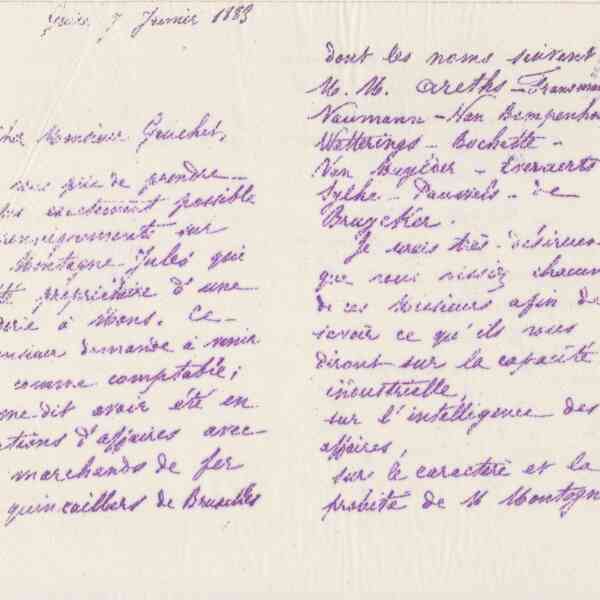 Guise 7 Janvier 1883
Monsieur Gouchet,
vous prie de prendre
exactement possible
renseignements sur
Montagne Jules qui
été propriétaire d'une
à Mons. Ce
monsieur demande à venir
comme comptable;
me dit avoir été en
d'affaires avec
marchands de fer
quincaillers de Bruxelles
dont les noms suivent
M. M. Areths
Naumann - Van
Wetterings - Bochette -
Van - Everaerts
Sylhe - Pauwels - de
Bruycker.
Je suis très désireux
que vous voissiez chacun
de ces Messieurs afin de
savoir ce qu'ils vous
diront sur la capacité
industrielle,
sur l'intelligence des
affaires,
sur le caractère et la
probité de M Montagn